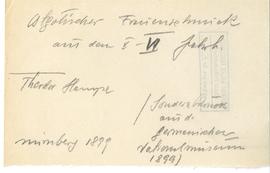 Altgotischer Frauenschmuck
aus dem V - VI Jahrh.
Theodor Hampe
(Sonderabdruck
aus d.
germanischen
Nationalmuseum
1899)
Nürnberg 1899